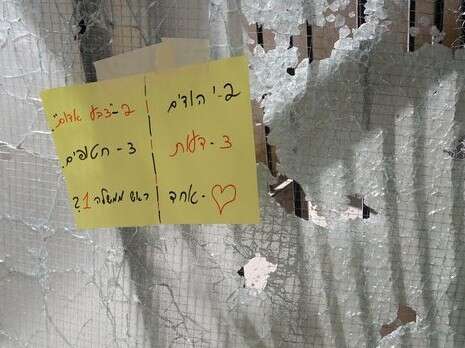 2- יהודים
3- דעות
♡- אחד
2-"צבע אדום"
3- חטופים
ראש ממשלה 1?